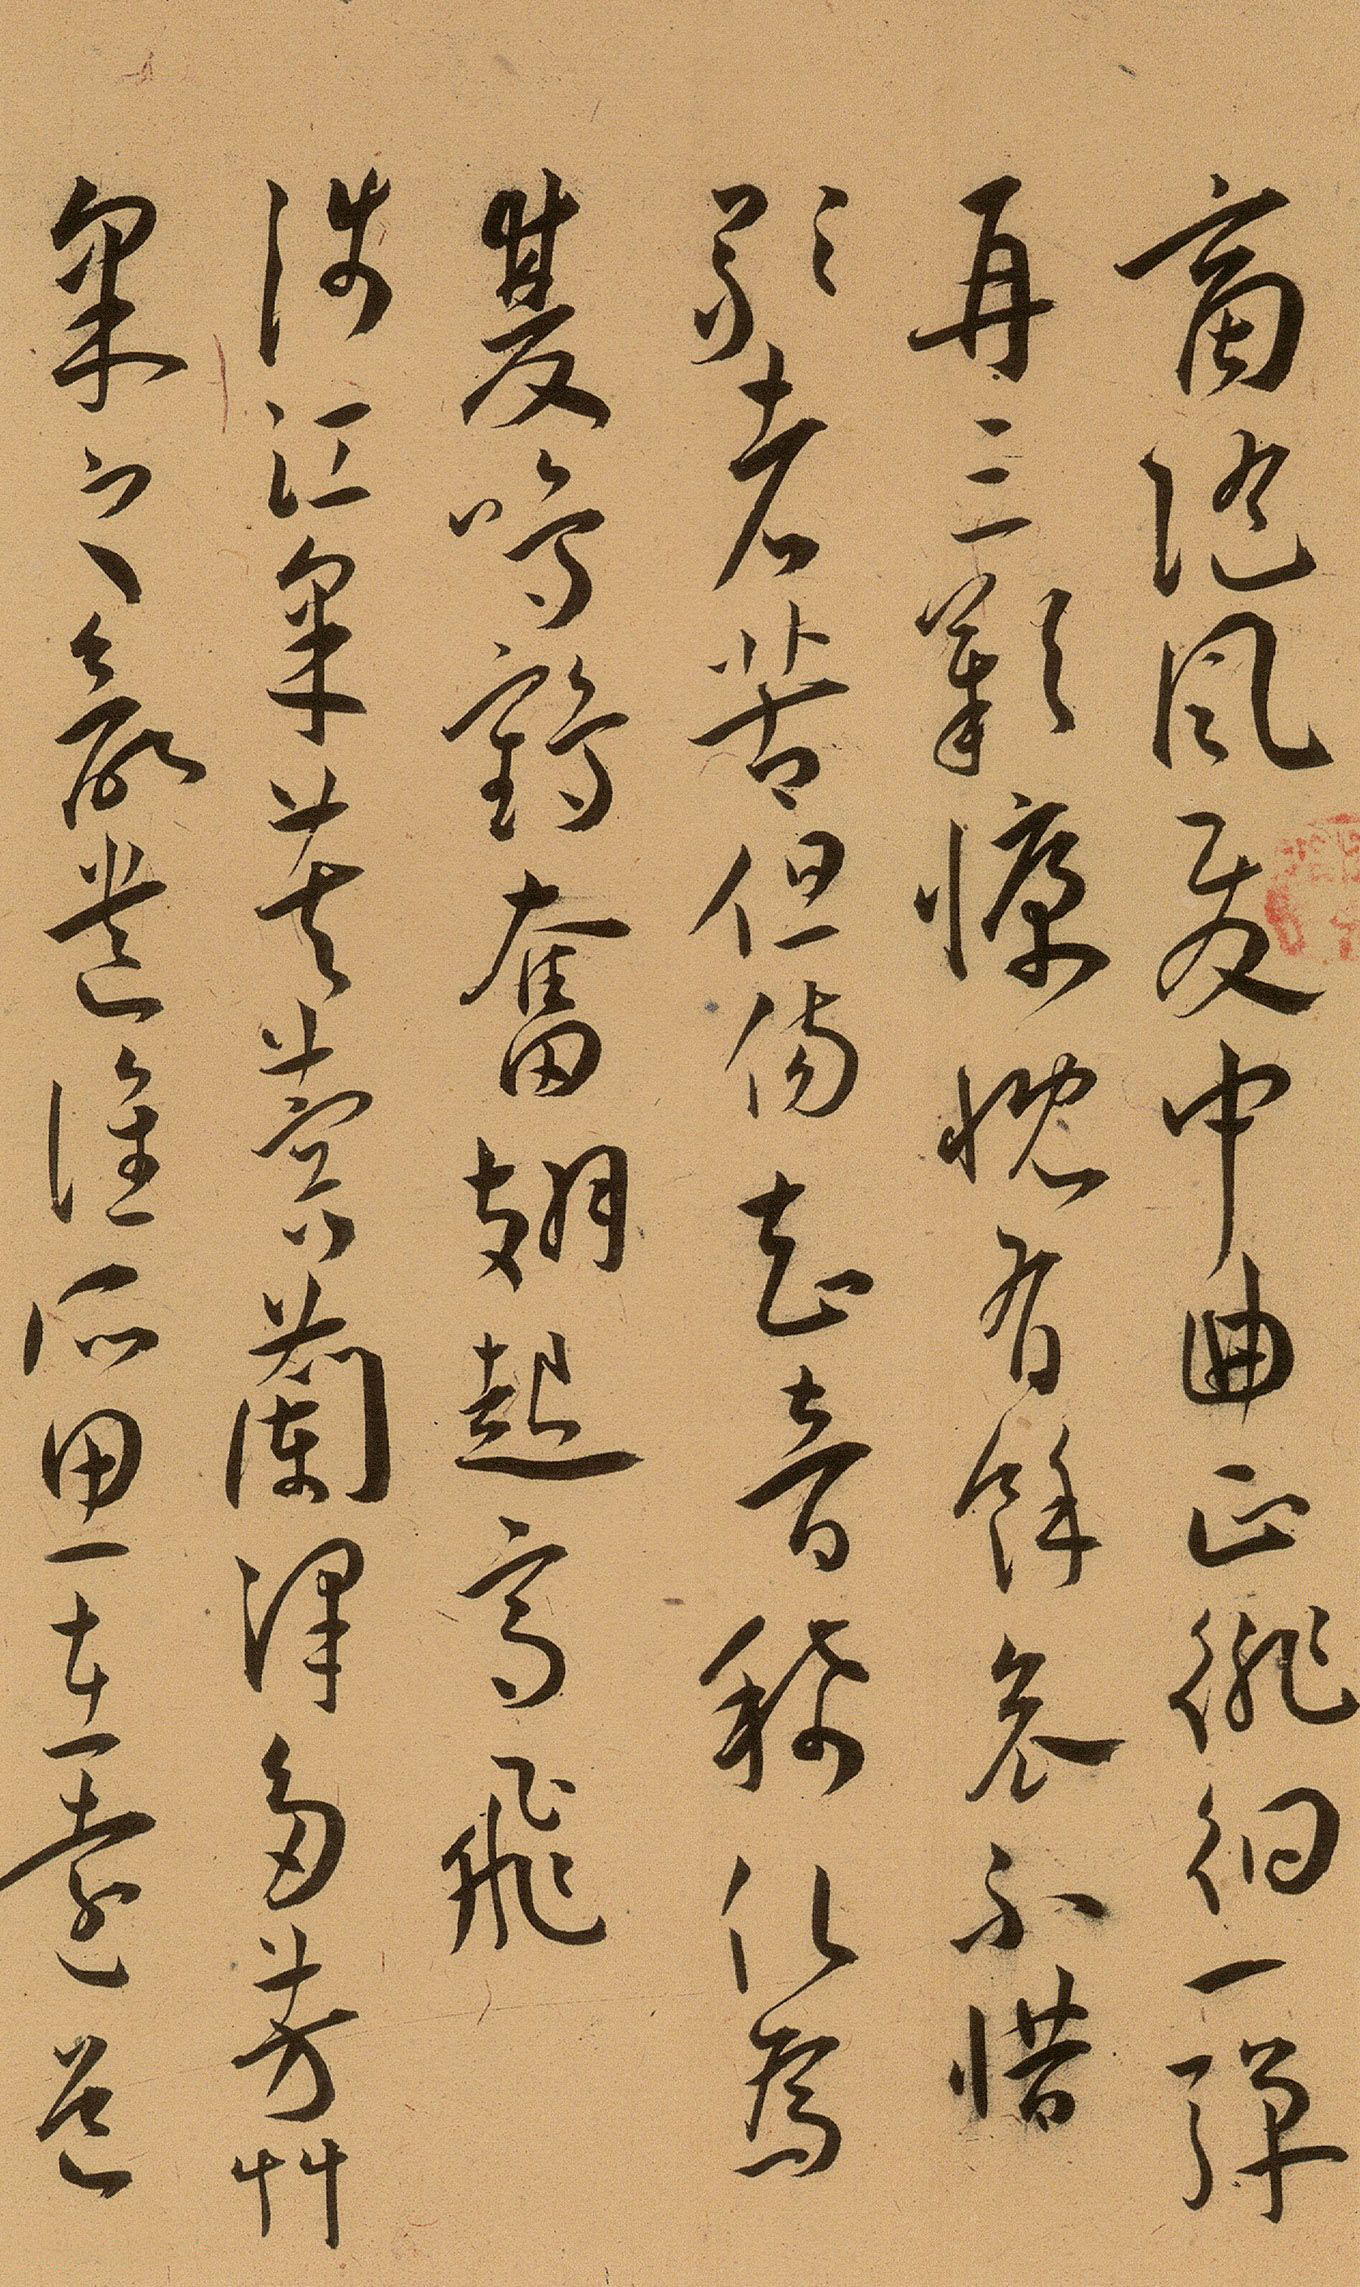 商隨風發中曲正徘徊一彈
再三歎慷慨有餘哀不惜
歌者苦但傷知音稀化為
雙鳴鶴奮翅起高飛
涉江采芙蓉蘭澤多芳艸
采之欲遺誰所思在遠道